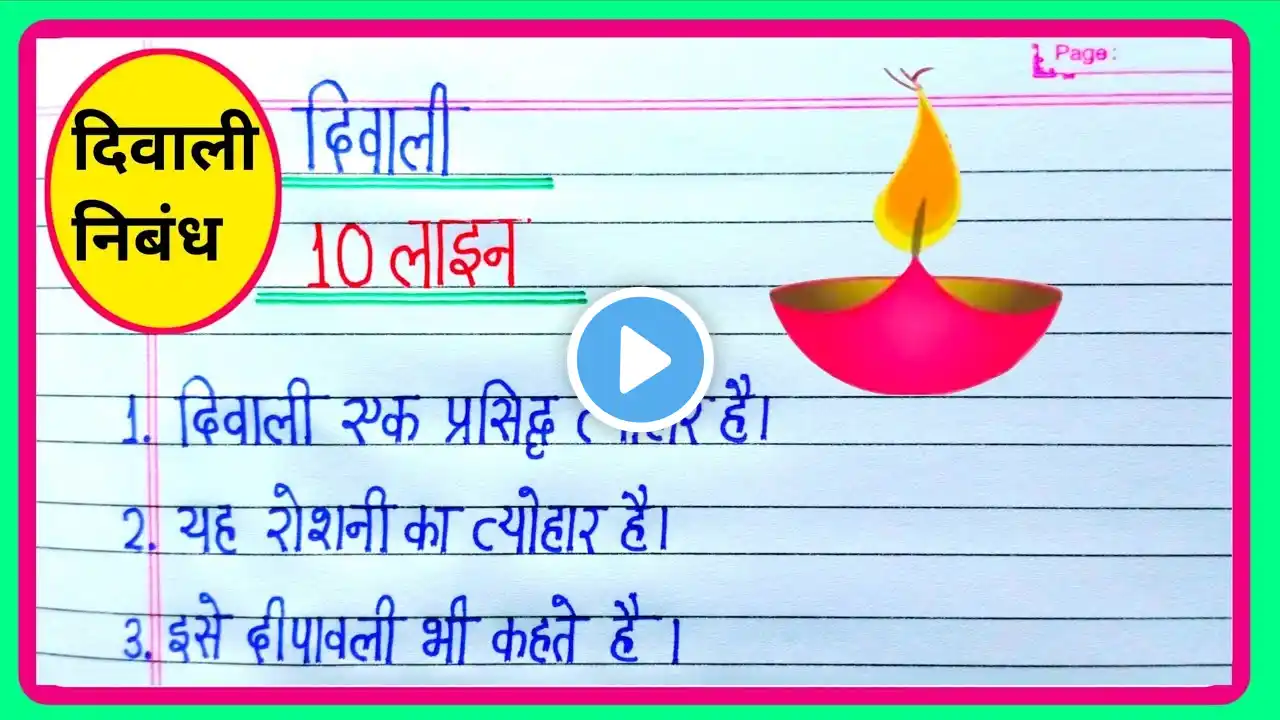 Page:
दिवाली
निबंध
दिवाली
10 लाइन
1. दिवाली एक प्रसिद्ध है।
2. यह रोशनी का त्योहार है।
3. इसे दीपावली भी कहते है ।